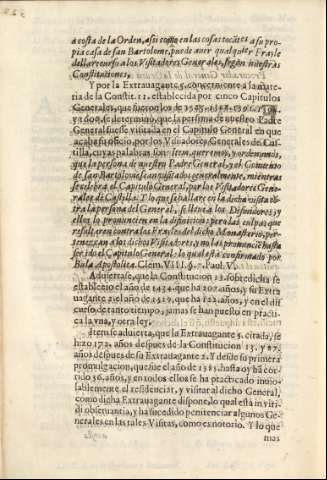 a costa de la Orden, assi como en las cosas tocātes a su pro
pia casa de san Bartolome, puede auer qualquier Frayle
della recurso a los Visitadores Generales, segun nuestras
Constituciones.
Y por la Extrauagante 5. concerniente a la mate
ria de la Constit. 12. establecida por cinco Capitulos
Generales, que fueron los de
y se determinò, que la persona de nuestro Padre
General fuesse visitada en el Capitulo General en que
acaba su oficio, por los Visitadores Generales de Cas-
tilla, cuyas palabras son. Item queremos, y ordenamos,
que la persona de nuestro Padre General, y el Conuento
de San Bartolome sean visitados generalmente, mientras
se celebra el Capitulo General, por los Visitadores Gene
rales de Castilla: Y lo que se hallare en la dicha visita cō
tra la persona del General, se lleue a los Difinidores, y
ellos lo pronuncien en la disinicion; pero las culpas que
resultaren contra los Frayles del dicho Monasterio, per-
tenezcan a los dichos Visitadores, y no las pronuncie hasta
ser ido el Capitulo General: lo qual està confirmado por
Bula Apostolica Clem. VIII. §. 7. Paul. V.
Aduiertase, que la Constitucion 12. sobredicha se
establecio el año de 1434. que ha 202. años, y su Extra
uagante 2. el año de 1513. que ha 122. años, y en el dis
curso de tanto tiempo, jamas se han puesto en practi-
ca la vna, y otra ley.
Item se aduierta, que la Extrauagante 5. citada, se
hizo 172. años despues de la Constitucion 13. y 72.
años despues de su Extrauagante 2. Y desde su primera
promulgacion, que fue el año de 1585. hasta oy ha cor-
rido 36. años, y en todos ellos se ha practicado inuio-
lablemente el residenciar, y visitar al dicho General,
como dicha Extrauagante dispone, lo qual està in viri-
di obseruantia, y ha sucedido penitenciar algunos Ge-
nerales en las tales Visitas, como es notorio. Y lo que
mas